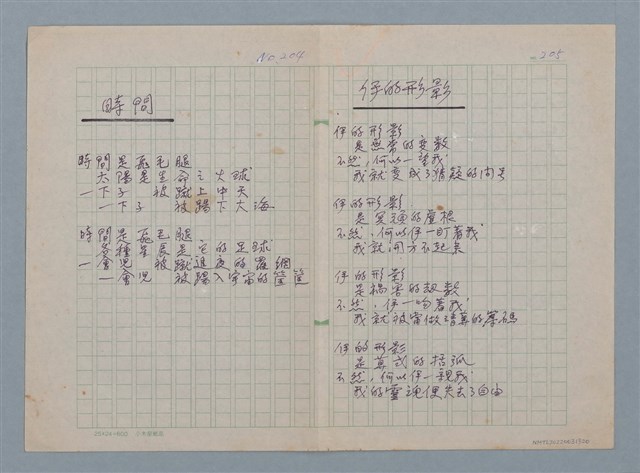 No.204
時間
時間是飛毛腿
太陽是生命之火球
一下子 被蹴上中天
一下子 被踢下大海
時間是飛毛腿
各種星辰是它的足球
一會兒 被蹴進夜的羅網
一會兒 被踢入宇宙的筐筐
205
伊的形影
伊的形影
是無常的变数
不然,何以一望我
我就变成了猜疑的问号
伊的形影
是冥頑的虚根
不然,何以伊一盯着我
我就开方不起来
伊的形影
是禍害的
不然,伊一吻著我
我就被當做清算的籌碼
伊的形影
是算式的括弧
不然,何以伊一親我
我的靈魂便失去了自由
25X24=600